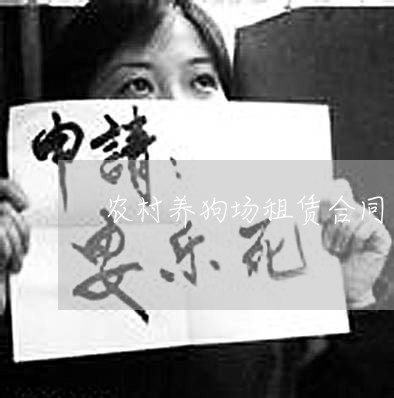 申請：
农村养狗场租赁合同
安乐死